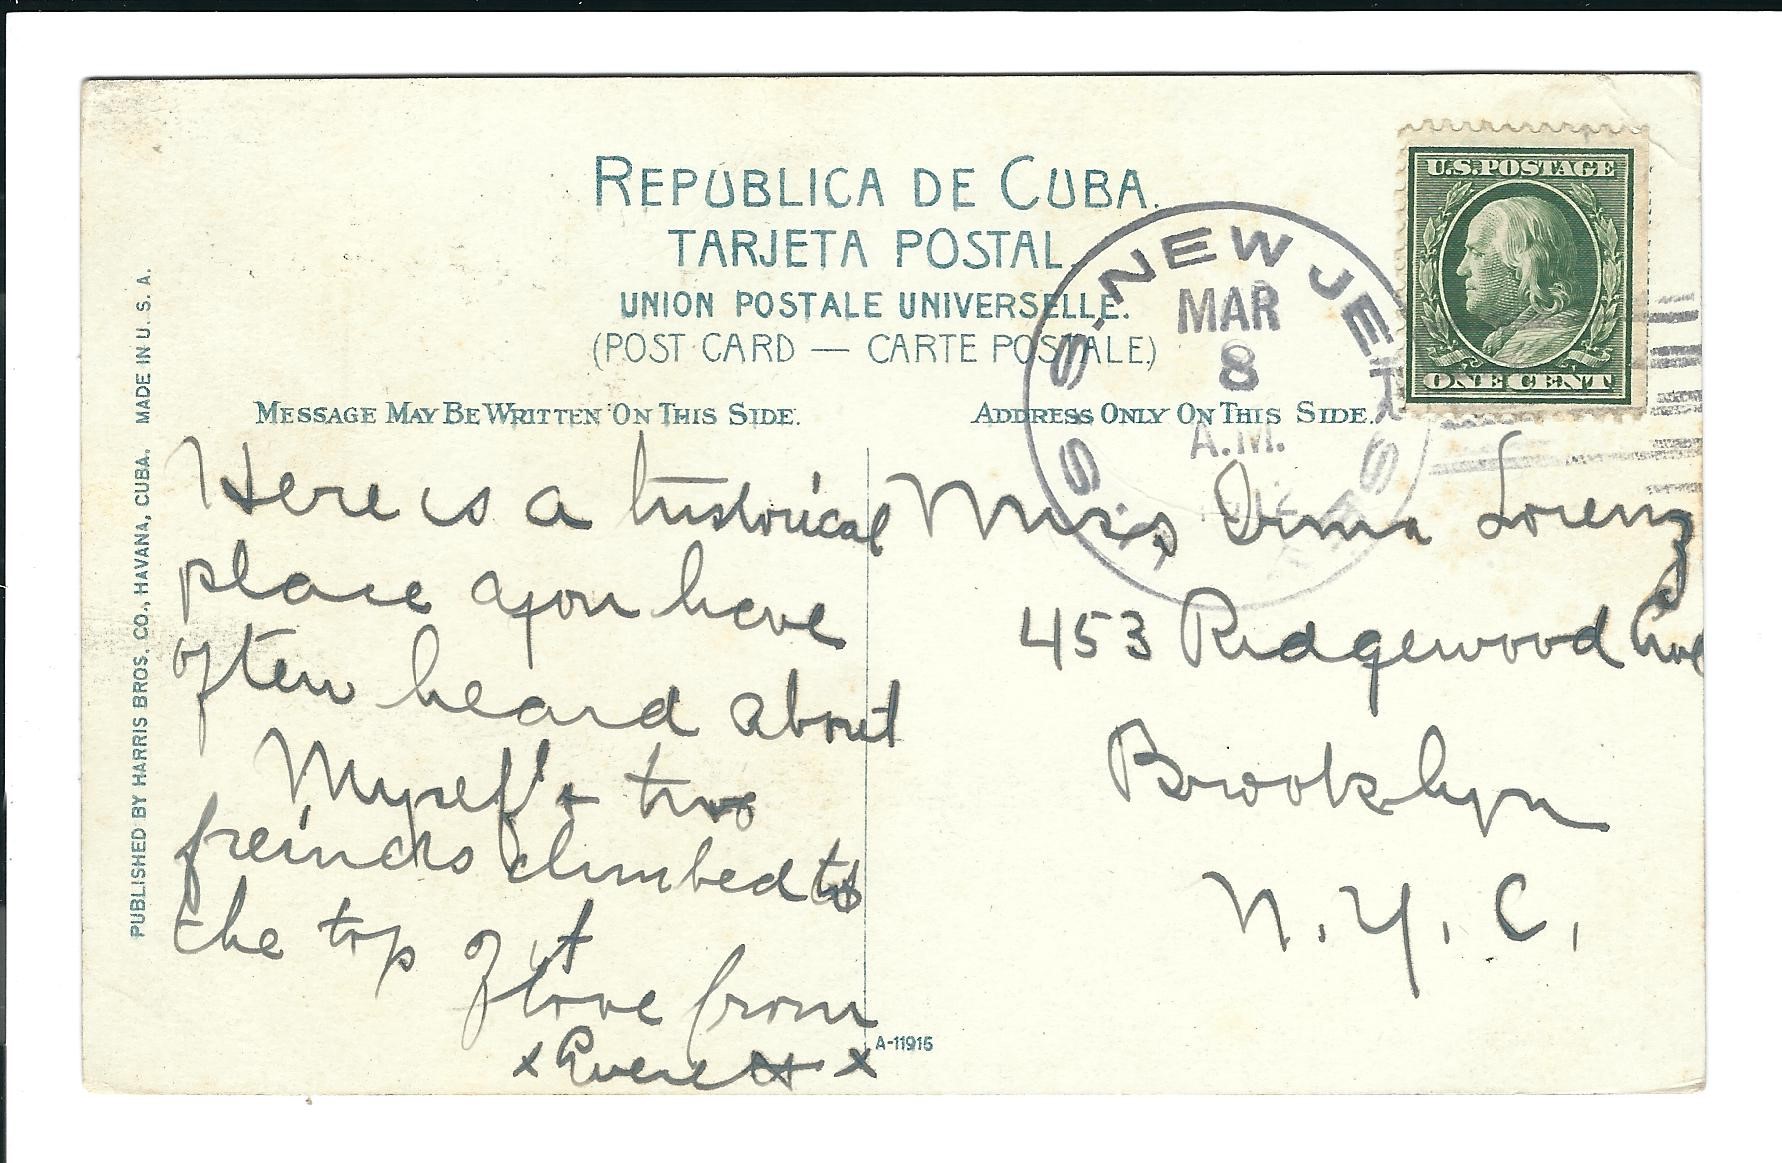 REPÚBLICA DE CUBA.
TARJETA POSTAL.
UNION POSTALE UNIVERSELLE.
(POST CARD — CARTE POSTALE)
MESSAGE MAY BE WRITTEN ON THIS SIDE.
ADDRESS ONLY ON THIS SIDE.
U.S. POSTAGE
ONE CENT
U.S.S. NEW JERSEY
MAR
8
A.M.
1912
Here is a historical
place you have
often heard about
Myself & two
freinds climbed to
the top of it
love from
x Everett x
Miss Irma Lorenz
453 Ridgewood Ave
Brooklyn
N.Y.C.
A-11915
PUBLISHED BY HARRIS BROS. CO., HAVANA, CUBA. MADE IN U. S. A.